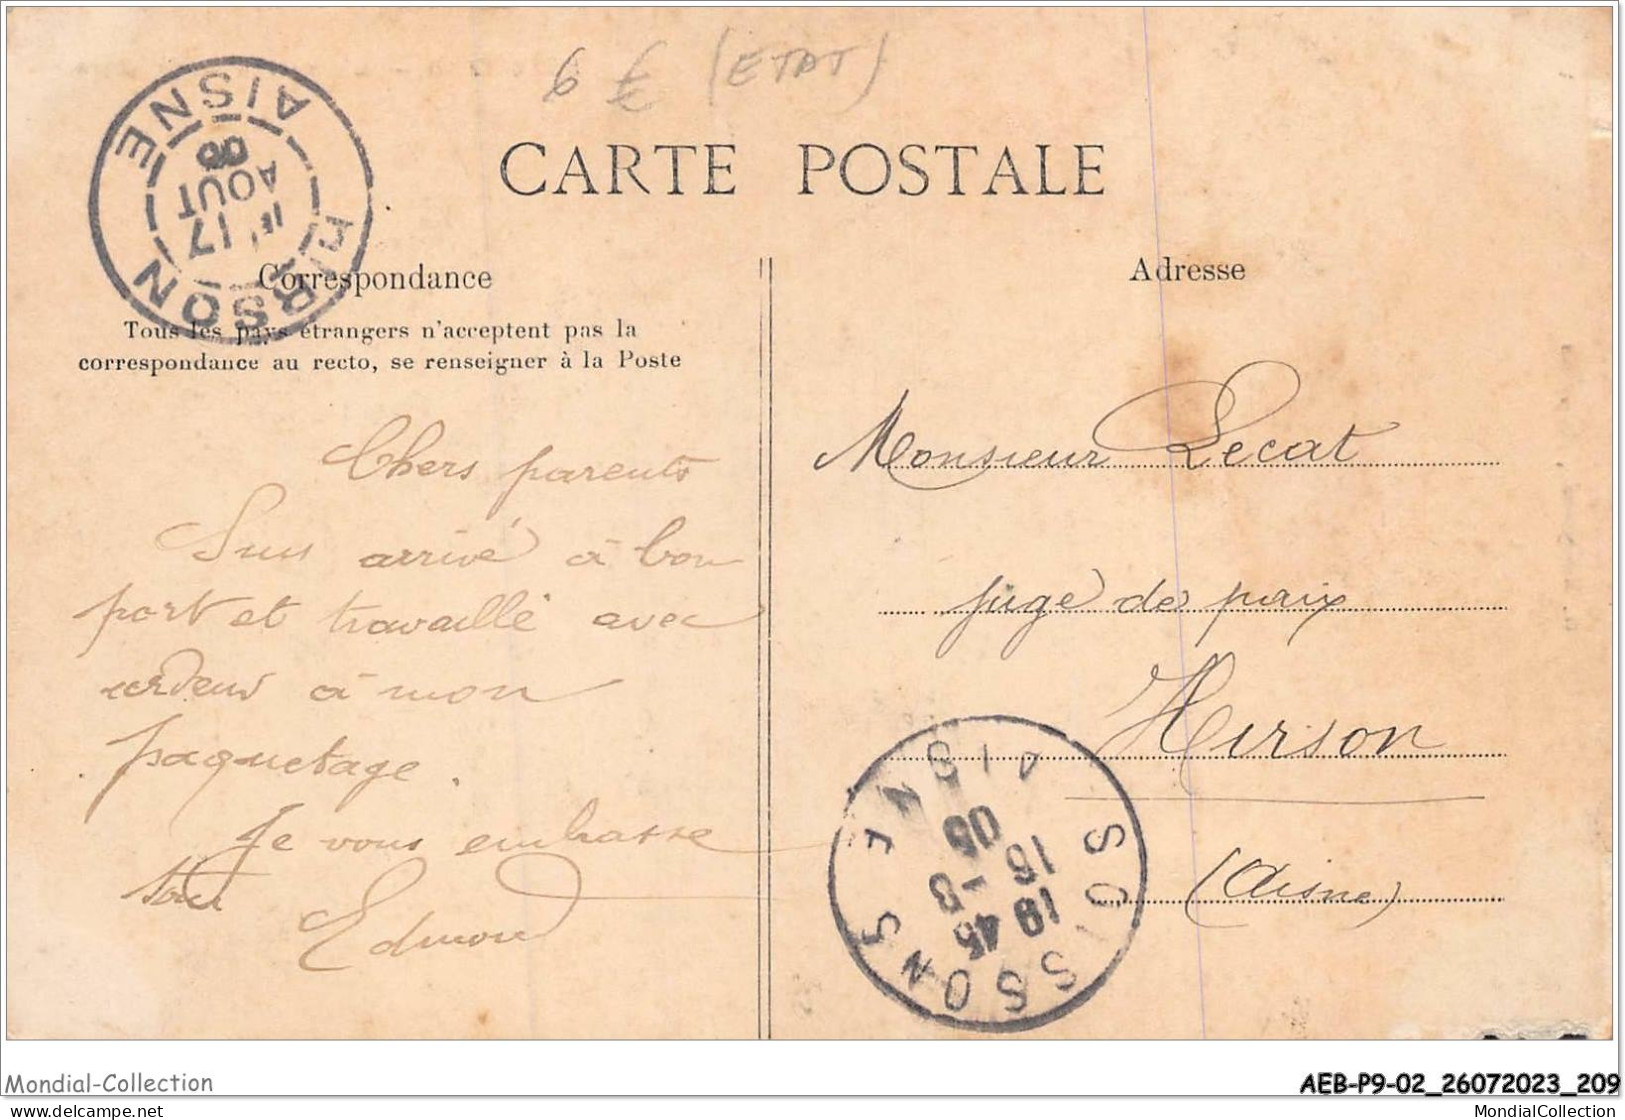 6 € (ETAT)
CARTE POSTALE
HIRSON AISNE
17
AOUT
Correspondance
Tous les pays étrangers n'acceptent pas la
correspondance au recto, se renseigner à la Poste
Chers parents
Suis arrivé à bon
port et travaille avec
ardeur à mon
paquetage.
Je vous embrasse
tous
Edmond
Adresse
Monsieur Lecat
juge de paix
Hirson
(Aisne)
SOISSONS AISNE
19 45
16 - 8
06
Mondial-Collection
AEB-P9-02_26072023_209
delcampe.net
MondialCollection